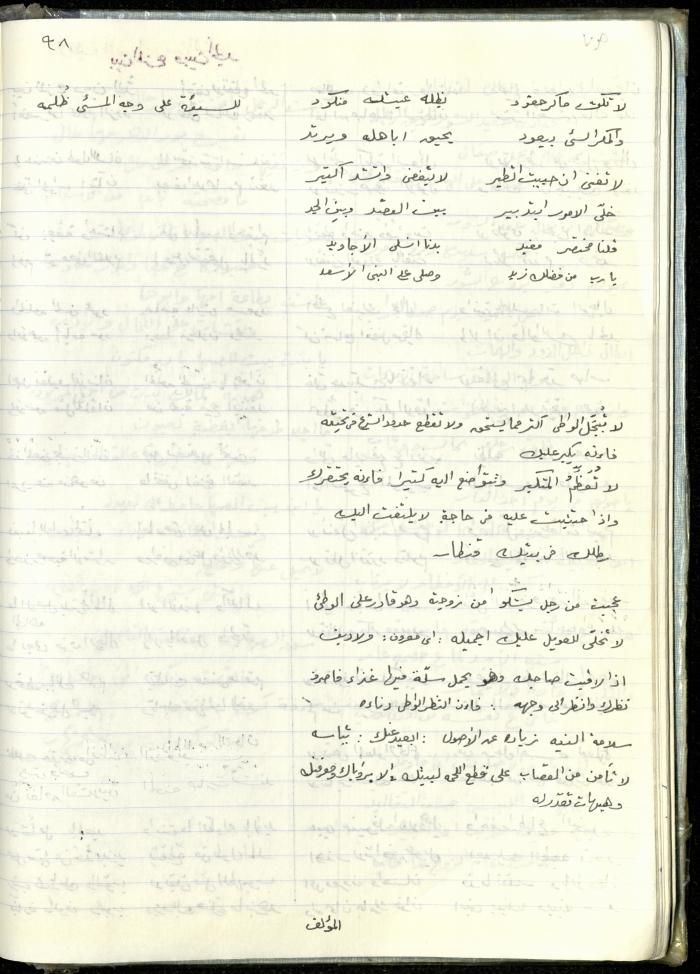 ٩٨
بين المزح وبين الجد
لا تكون ماكر حقود تظله عيشتك منكود للسيئة على وجه المسئى ظلمه
والمكر السئ بيعود يحيق اباهله ويرتد
لا تفنى ان حبيت اتطير لا تيقضى وتنشد أكثير
خلّى الامور ابتدبير بين العقد وبين الجد
قلنا مختصر مفيد بدنا انسلى الأجاويد
يا رب من فضلك زيد وصلى على النبى الأسعد
لا تبُجّل الواطى أكثر مما يستحق ولا تقطع حدود الشرع فى تحيته
فإنه يكبر عليك
لا تُعَظِّمُ المتكبر وتتواضع اليه كثيرا فإنه يحتقرك
واذا حتيت عليه فى حاجة لا يلتفت اليك
رطلك فى بيتك قنطار
عجبت من رجل يشكو من زوجته وهو قادر على الوطئ
لا تخلّى للعويل عليك اجميله : اى معون : ولا ديف
اذا لاقيت صاحبك وهو يحمل سلّة فيها غذاء فاصرف
نظرك وانظر الى وجهه : فان النظر الواطى دناءه
سلامة النيه زياده عن الأصول : ابعيد عنك : تياسه
لا تأمن من القصاب على قطع اللحم لبيتك إلا برؤياك ومعرفتك
وهيهات تقدر له
المؤلف